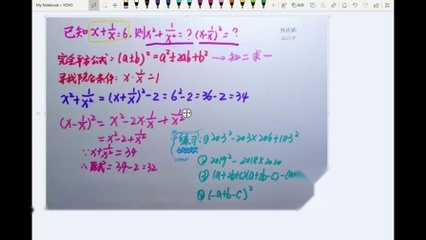 My Notebook » YOYO
已知 x+1/x=6, 则x²+1/x²=? (x-1/x)²=?
完全平方公式: (a±b)²=a²±2ab+b² → 知二求一
寻找隐含条件: x·1/x=1
x²+1/x²=(x+1/x)²-2=6²-2=36-2=34
(x-1/x)²=x²-2x·1/x+1/x²
=x²-2+1/x²
∵x+1/x²=34
∴原式=34-2=32
练习: ① 203²-203×206+103²
② 2019²-2018×2020
③ (a+2b+c)(a+2b-c)-(a
④ (-a+b-c)²